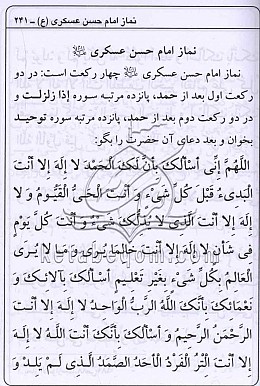 نماز امام حسن عسکری (ع) ــ ۲۴۱
نماز امام حسن عسکری
نماز امام حسن عسکری چهار رکعت است: در دو
رکعت اول بعد از حمد، پانزده مرتبه سوره إذا زلزلت و
در دو رکعت دوم بعد از حمد، پانزده مرتبه سوره توحید
بخوان و بعد دعای آن حضرت را بگو:
اَللَّهُمَّ إِنِّی أَسْأَلُکَ بِأَنَّ لَکَ الْحَمْدَ لا إِلهَ إِلاَّ أَنْتَ
الْبَدِیءُ قَبْلَ کُلِّ شَیْءٍ وَ أَنْتَ الْحَیُّ الْقَیُّومُ وَ لا
إِلهَ إِلاَّ أَنْتَ الَّذِی لا یُذِلُّکَ شَیْءٌ وَ أَنْتَ کُلَّ یَوْمٍ
فِی شَأْنٍ لا إِلهَ إِلاَّ أَنْتَ خالِقُ ما یُرَی وَ ما لا یُرَی
الْعالِمُ بِکُلِّ شَیْءٍ بِغَیْرِ تَعْلِیمٍ أَسْأَلُکَ بِآلائِکَ وَ
نَعْمائِکَ بِأَنَّکَ اللَّهُ الرَّبُّ الْواحِدُ لا إِلهَ إِلاَّ أَنْتَ
الرَّحْمنُ الرَّحِیمُ وَ أَسْأَلُکَ بِأَنَّکَ أَنْتَ اللَّهُ لا إِلهَ
إِلاَّ أَنْتَ الْوَتْرُ الْفَرْدُ الْأَحَدُ الصَّمَدُ الَّذِی لَمْ یَلِدْ وَ